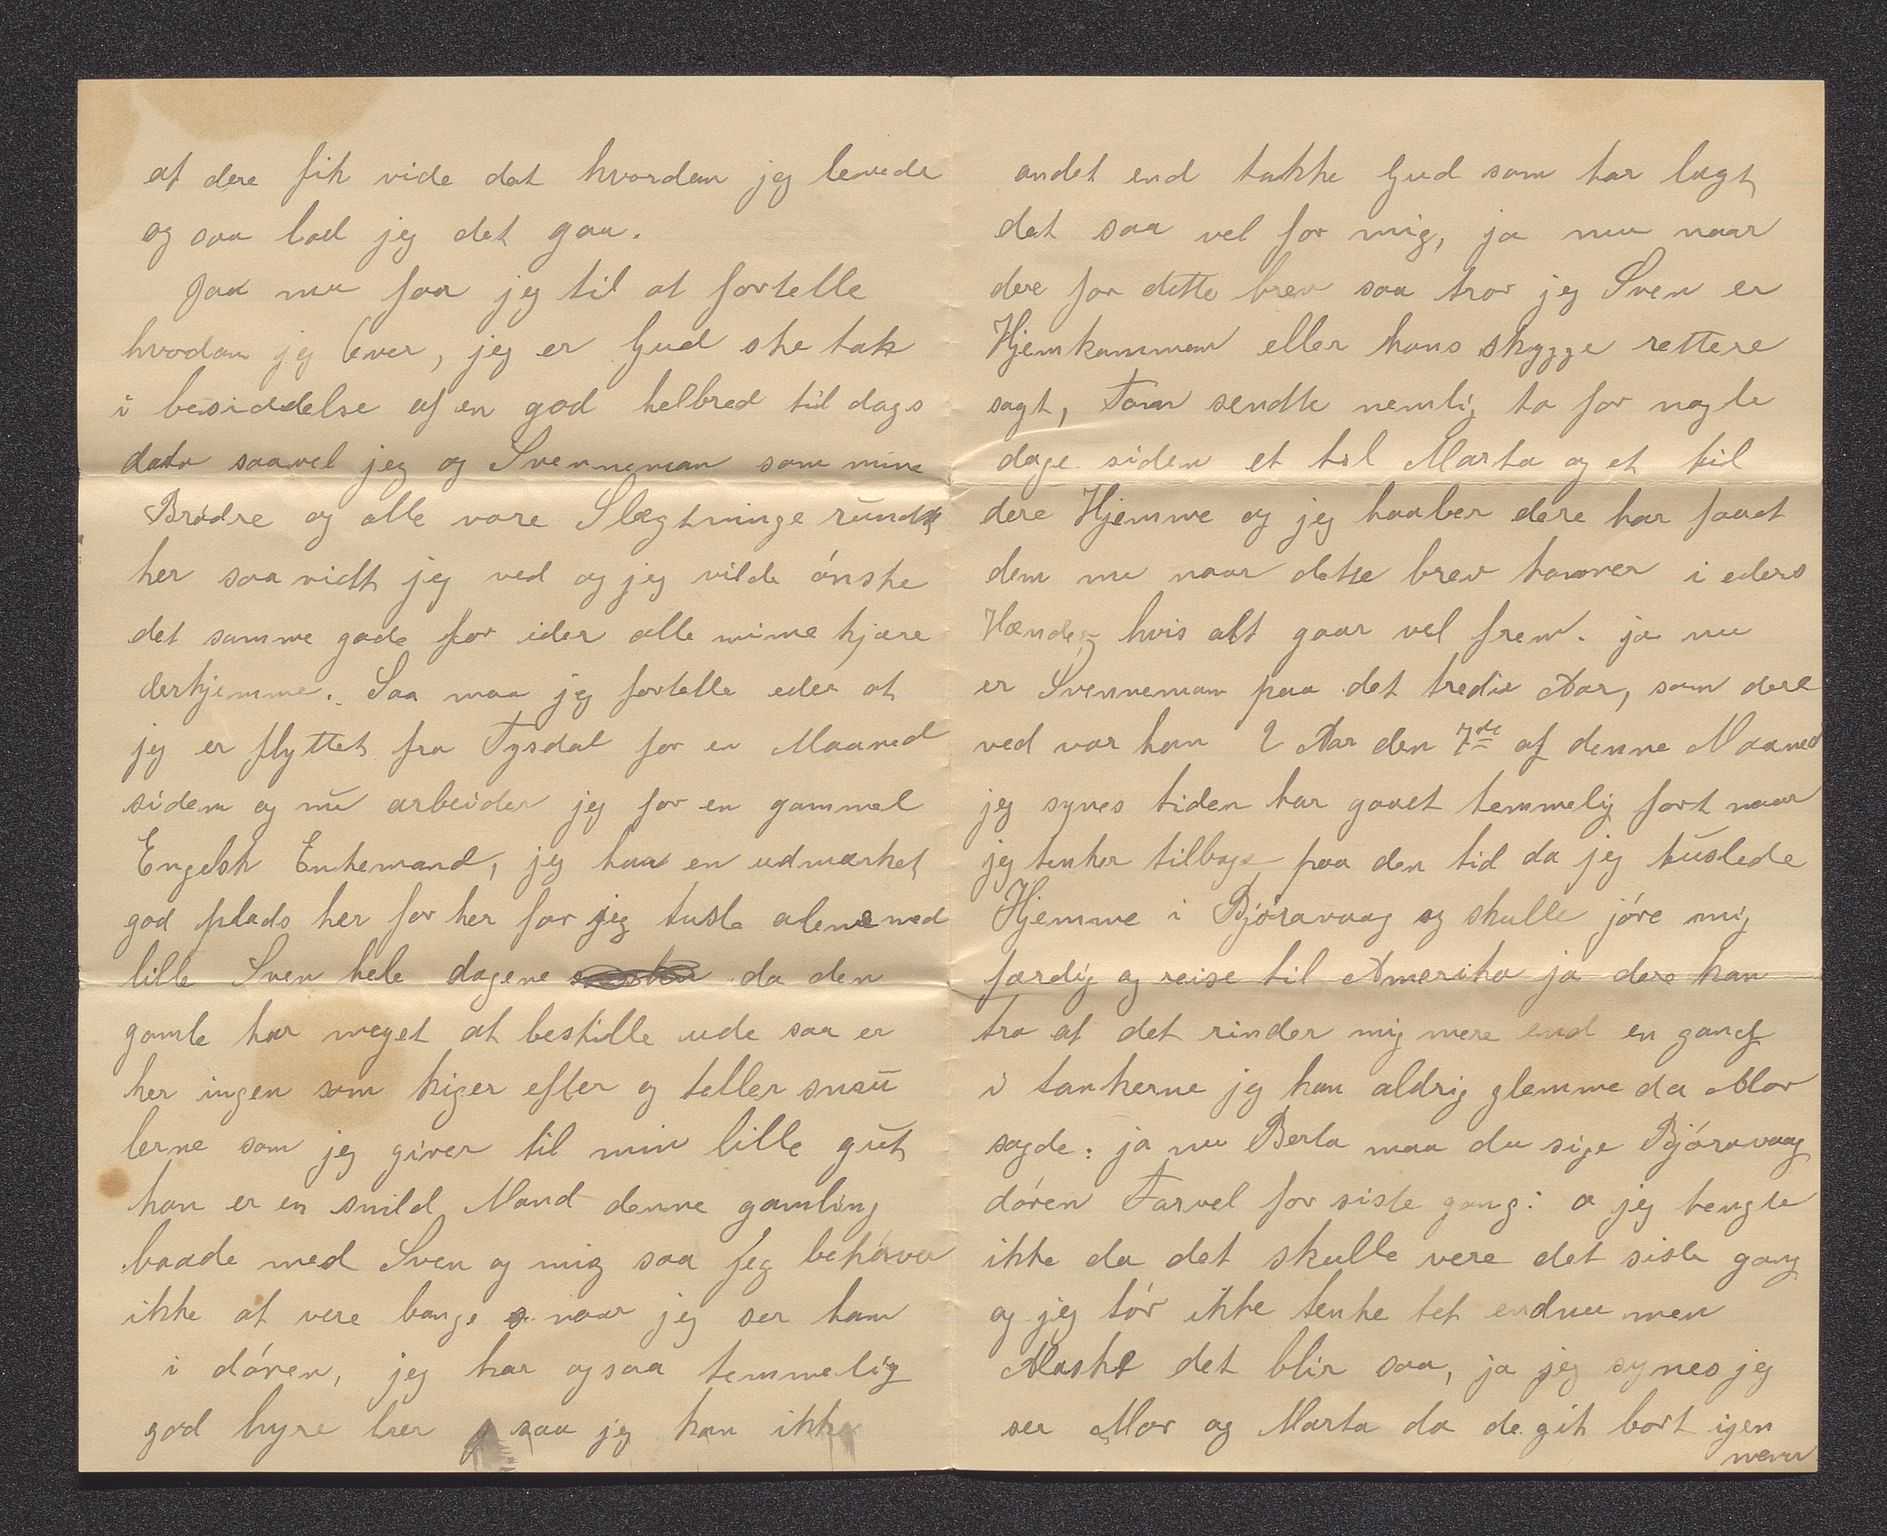 at dere fik vide dat hvordan jeg levede
og saa lod jeg det gaa.
Jaa nu faar jeg til at fortelle
hvodan jeg lever, jeg er Gud ske tak
i besiddelse af en god helbred til dags
dato saavel jeg og Svenneman som mine
Brødre og alle vore Slægtninge rundt
her saa vidt jeg ved og jeg vilde ónske
det samme gode for ider alle mine kjære
derhjemme. Saa maa jeg fortelle eder at
jeg er flyttet fra Tysdal for en Maaned
siden og nū arbeider jeg for en gammel
Engelsk Enkemand, jeg har en udmærket
god plads her for her for jeg tusle alene med
lille Sven hele dagene da den
gamle har meget at bestille ude saa er
her ingen som kiger efter og teller smaū
lerne som jeg giver til min lille gūt
han er en snild Mand denne gamling
baade med Sven og mig saa jeg behøver
ikke at vere bange naar jeg ser ham
i dóren, jeg har ogsaa temmelig
god hyre her saa jeg kan ikke
andet end takke Gud som har lagt
det saa vel for mig, ja nu naar
dere for dette brev saa tror jeg Sven er
Hjemkommen eller hans skygge rettere
sagt, Tom sendte nemlig to for nogle
dage siden et til Marta og et til
dere Hjemme og jeg haaber dere har faaet
dem nu naar dette brev kommer i eders
Hænder hvis alt gaar vel frem. ja nu
er Svenneman paa det tredie Aar, som dere
ved var han 2 Aar den 7de af denne Maaned
jeg synes tiden har gaaet temmelig fort naar
jeg tenker tilbage paa den tid da jeg tūslede
Hjemme i Bjóravaag og skulle jóre mig
færdig og reise til Amerika ja dere kan
tro at det rinder mig mere end en gang
i tankerne jeg kan aldrig glemme da Mor
sagde: ja nu Berta maa du sige Bjóravaag
dóren Farvel for siste gang: a jeg tengte
ikke da det skulle vere det siste gang
og jeg tór ikke tenke tet endnu men
Maske det blir saa, ja jeg synes jeg
ser Mor og Marta da de gik bort igen